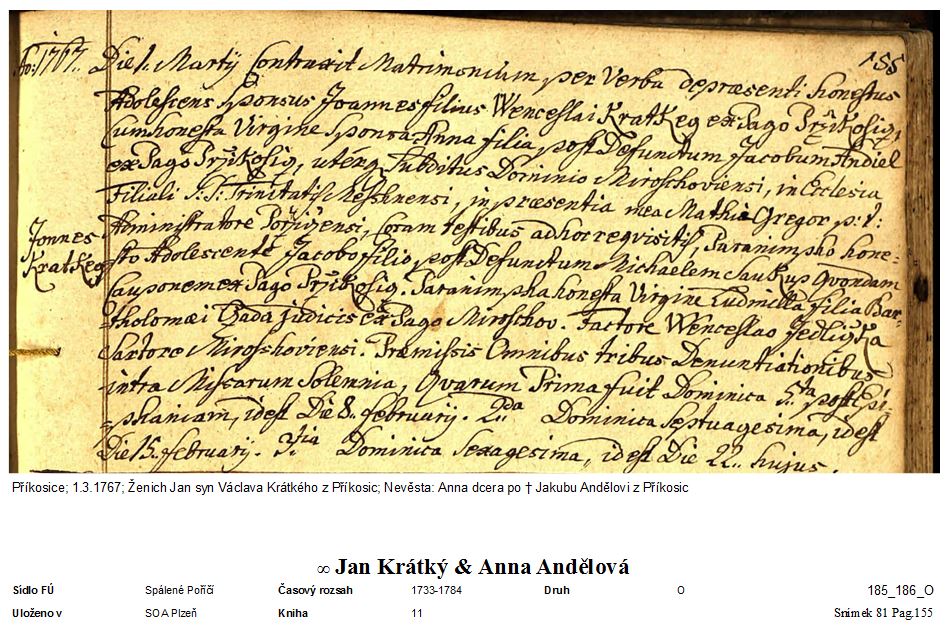 155
Ao: 1767. Die 1. Martij Contraxit Matrimonium per Verba de præsenti honestus
Adolescens Sponsus Joannes filius Wenceslai Kratkeg ex Pago Pržikosig,
Cum honesta Virgine Sponsa Anna filia post Defunctum Jacobum Andiel
ex Pago Pržikosig, uterq Subditus Dominio Miroschoviensi, in Ecclesia
Filiali S.S. Trinitatis Meshnensi, in præsentia mea Mathia Gregor p: t:
Administratore Poržizensi, Coram testibus ad hoc requisitis, Paranimpho hone-
Jonnes
Kratkeg
sto Adolescente Jacobo filio post Defunctum Michaelem Saukup Quondam
Cauponem ex Pago Pržikosig. Paranimpha honesta Virgine Ludmilla filia Bar-
tholomæi Judicis ex Pago Miroschov. Factore Wenceslao Jedlicžka
Sartore Miroshoviensi. Præmissis Omnibus tribus Denuntiationibus
intra Missarum Solemnia, Quarum Prima fuit Dominica 5ta post Epi-
phaniam, idest Die 8. februarij. 2da Dominica Septuagesima, idest
Die 15. februarij. 3tia Dominica Sexagesima, idest Die 22. hujus.
Příkosice; 1.3.1767; Ženich Jan syn Václava Krátkého z Příkosic; Nevěsta: Anna dcera po † Jakubu Andělovi z Příkosic
∞ Jan Krátký & Anna Andělová
Sídlo FÚ Spálené Poříčí Časový rozsah 1733-1784 Druh O 185_186_O
Uloženo v SOA Plzeň Kniha 11 Snímek 81 Pag.155